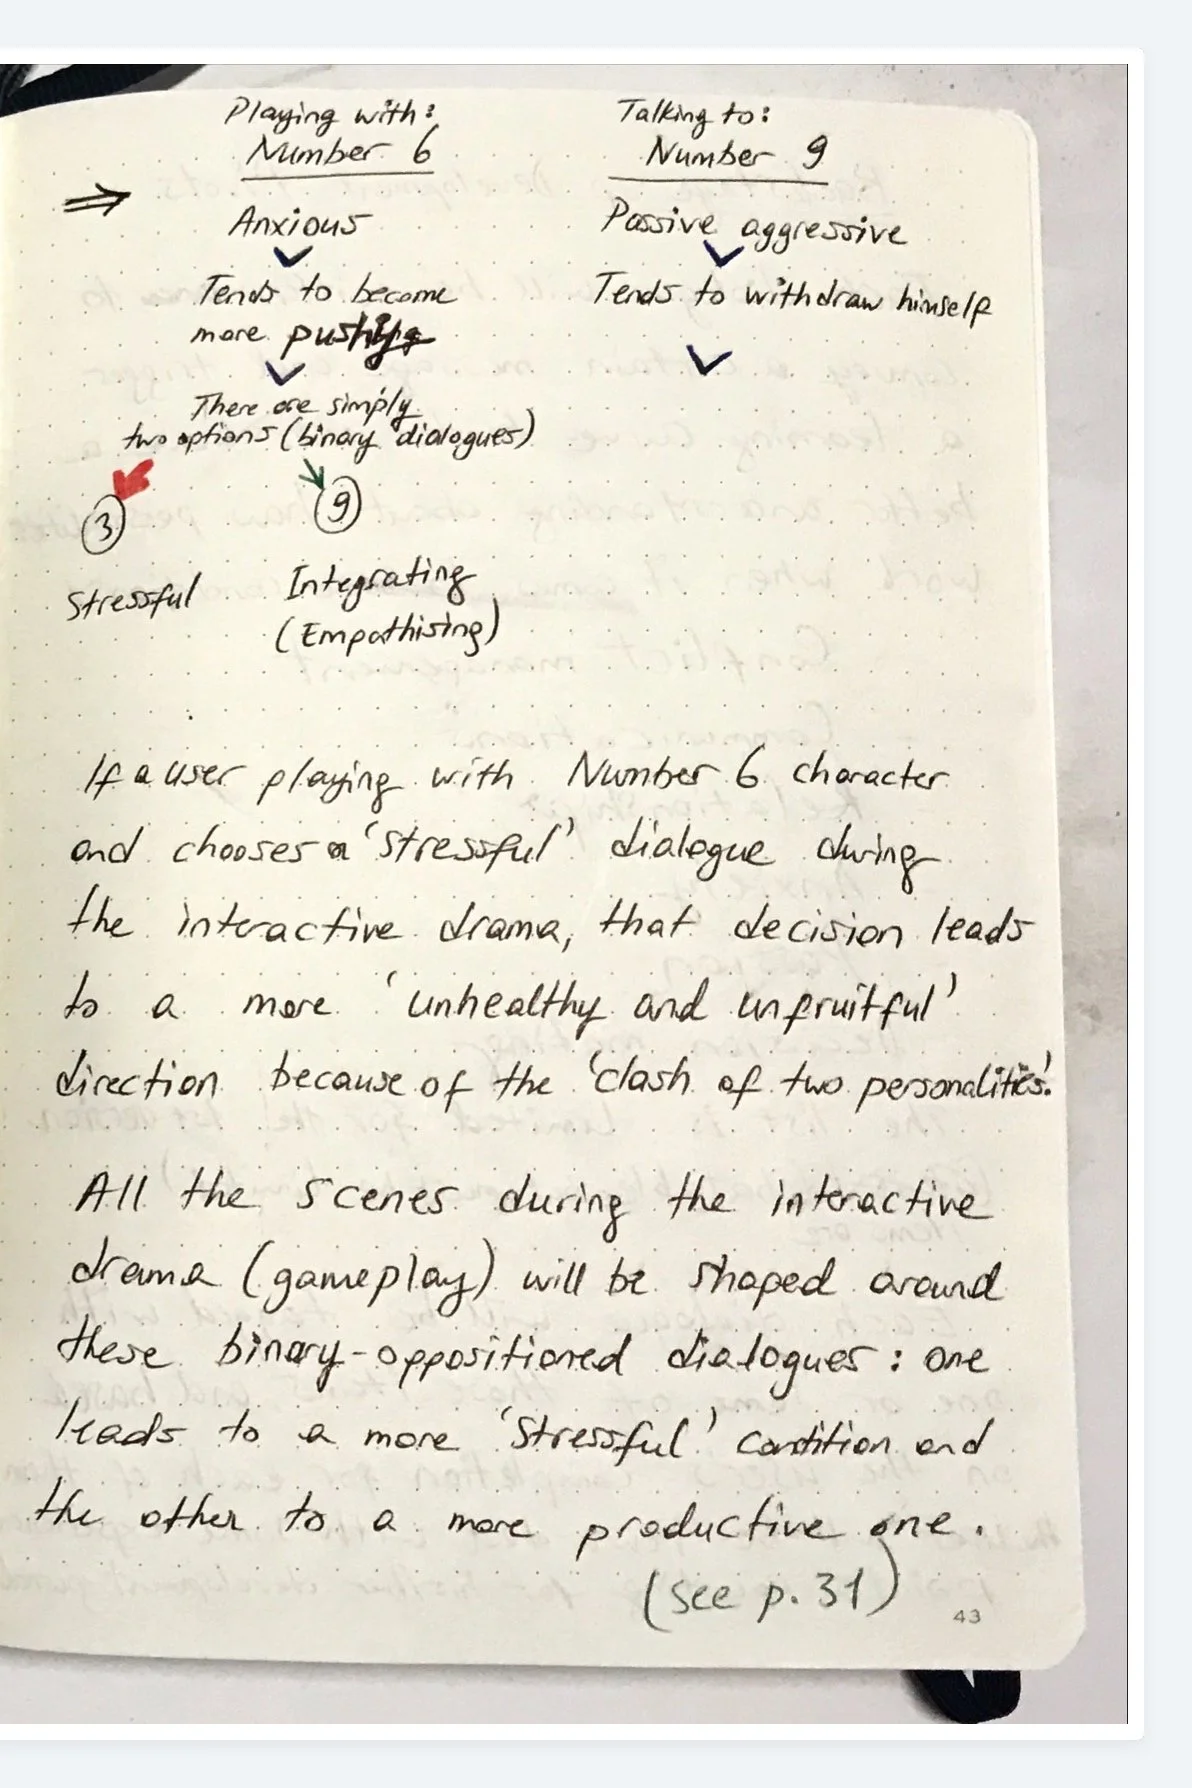 Playing with:
Number 6
Anxious
Tends to become
more pushy
There are simply
two options (binary dialogues)
3
9
Stressful
Integrating
(Empathising)
Talking to:
Number 9
Passive aggressive
Tends to withdraw himself
If a user playing with Number 6 character
and chooses a 'stressful' dialogue during
the interactive drama, that decision leads
to a more 'unhealthy and unfruitful'
direction because of the 'clash of two personalities'.
All the scenes during the interactive
drama (gameplay) will be shaped around
these binary-oppositioned dialogues: one
leads to a more 'Stressful' condition and
the other to a more productive one.
(see p. 31)
43